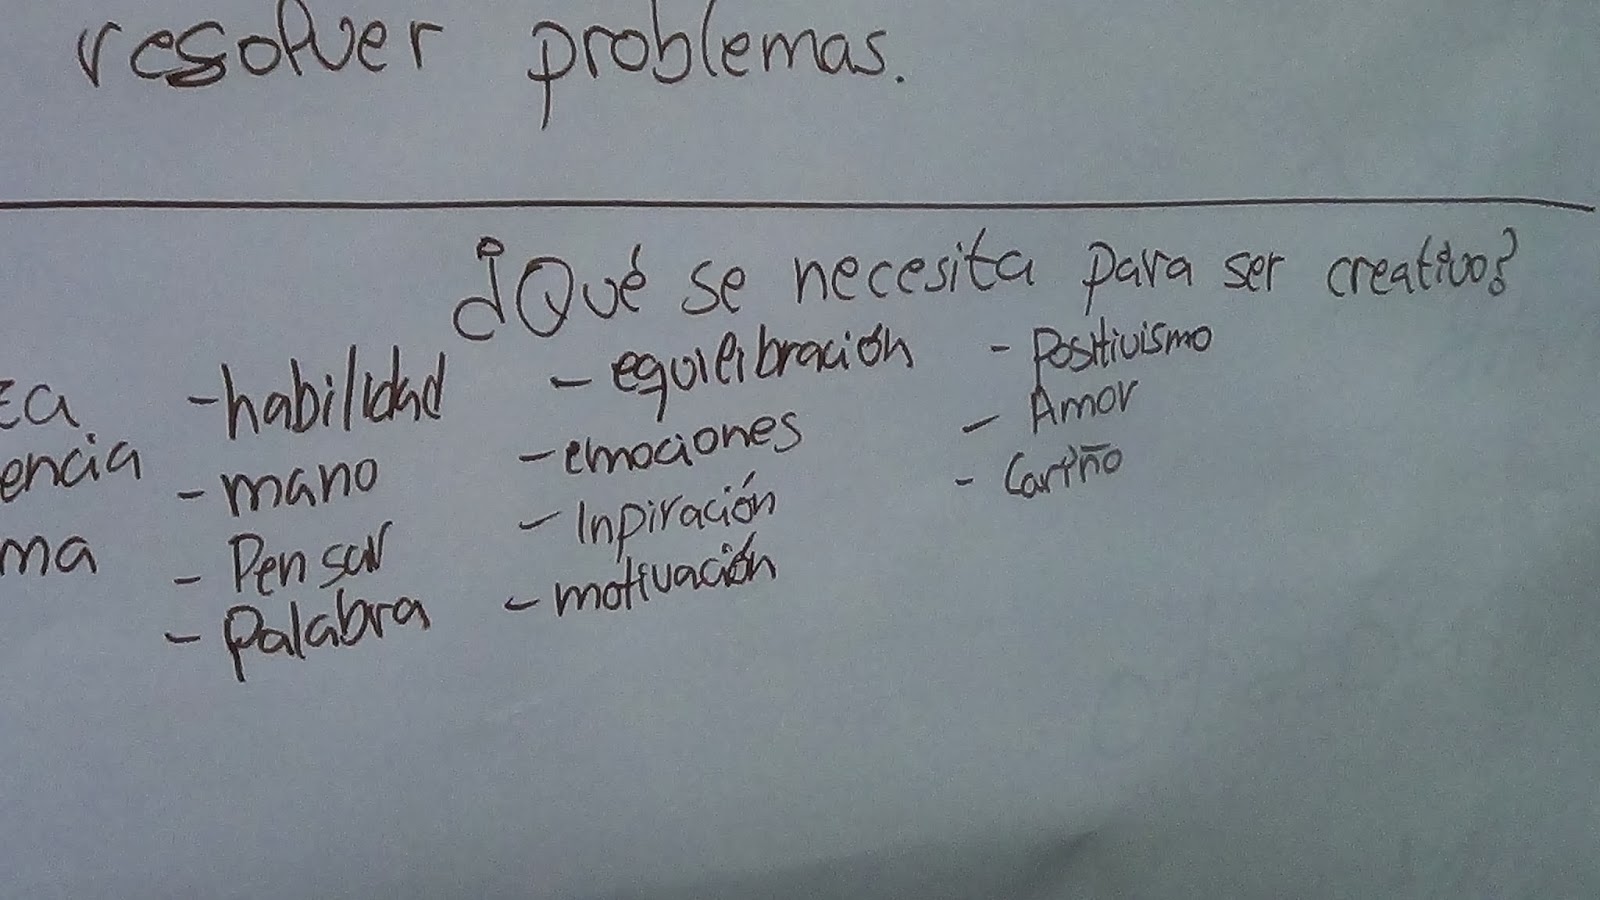 resolver problemas.
¿Qué se necesita para ser creativo?
-habilidad
-mano
-Pensar
-Palabra
-equilibración
-emociones
-Inpiración
-motivación
-Positivismo
-Amor
-Cariño